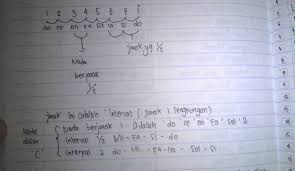 1 2 3 4 5 6 7 i
do re mi fa sol la si do
Nada jarak yg 1/2
berjarak
1/2
jarak ini adalah interval ( jarak 1 lengkungan)
Nada Nada berjarak 1 adalah do re mi fa sol si
dasar interval 1/2 Mi - Fa - Si - do
C interval 2 do - Mi - Fa - la - Sol - Si